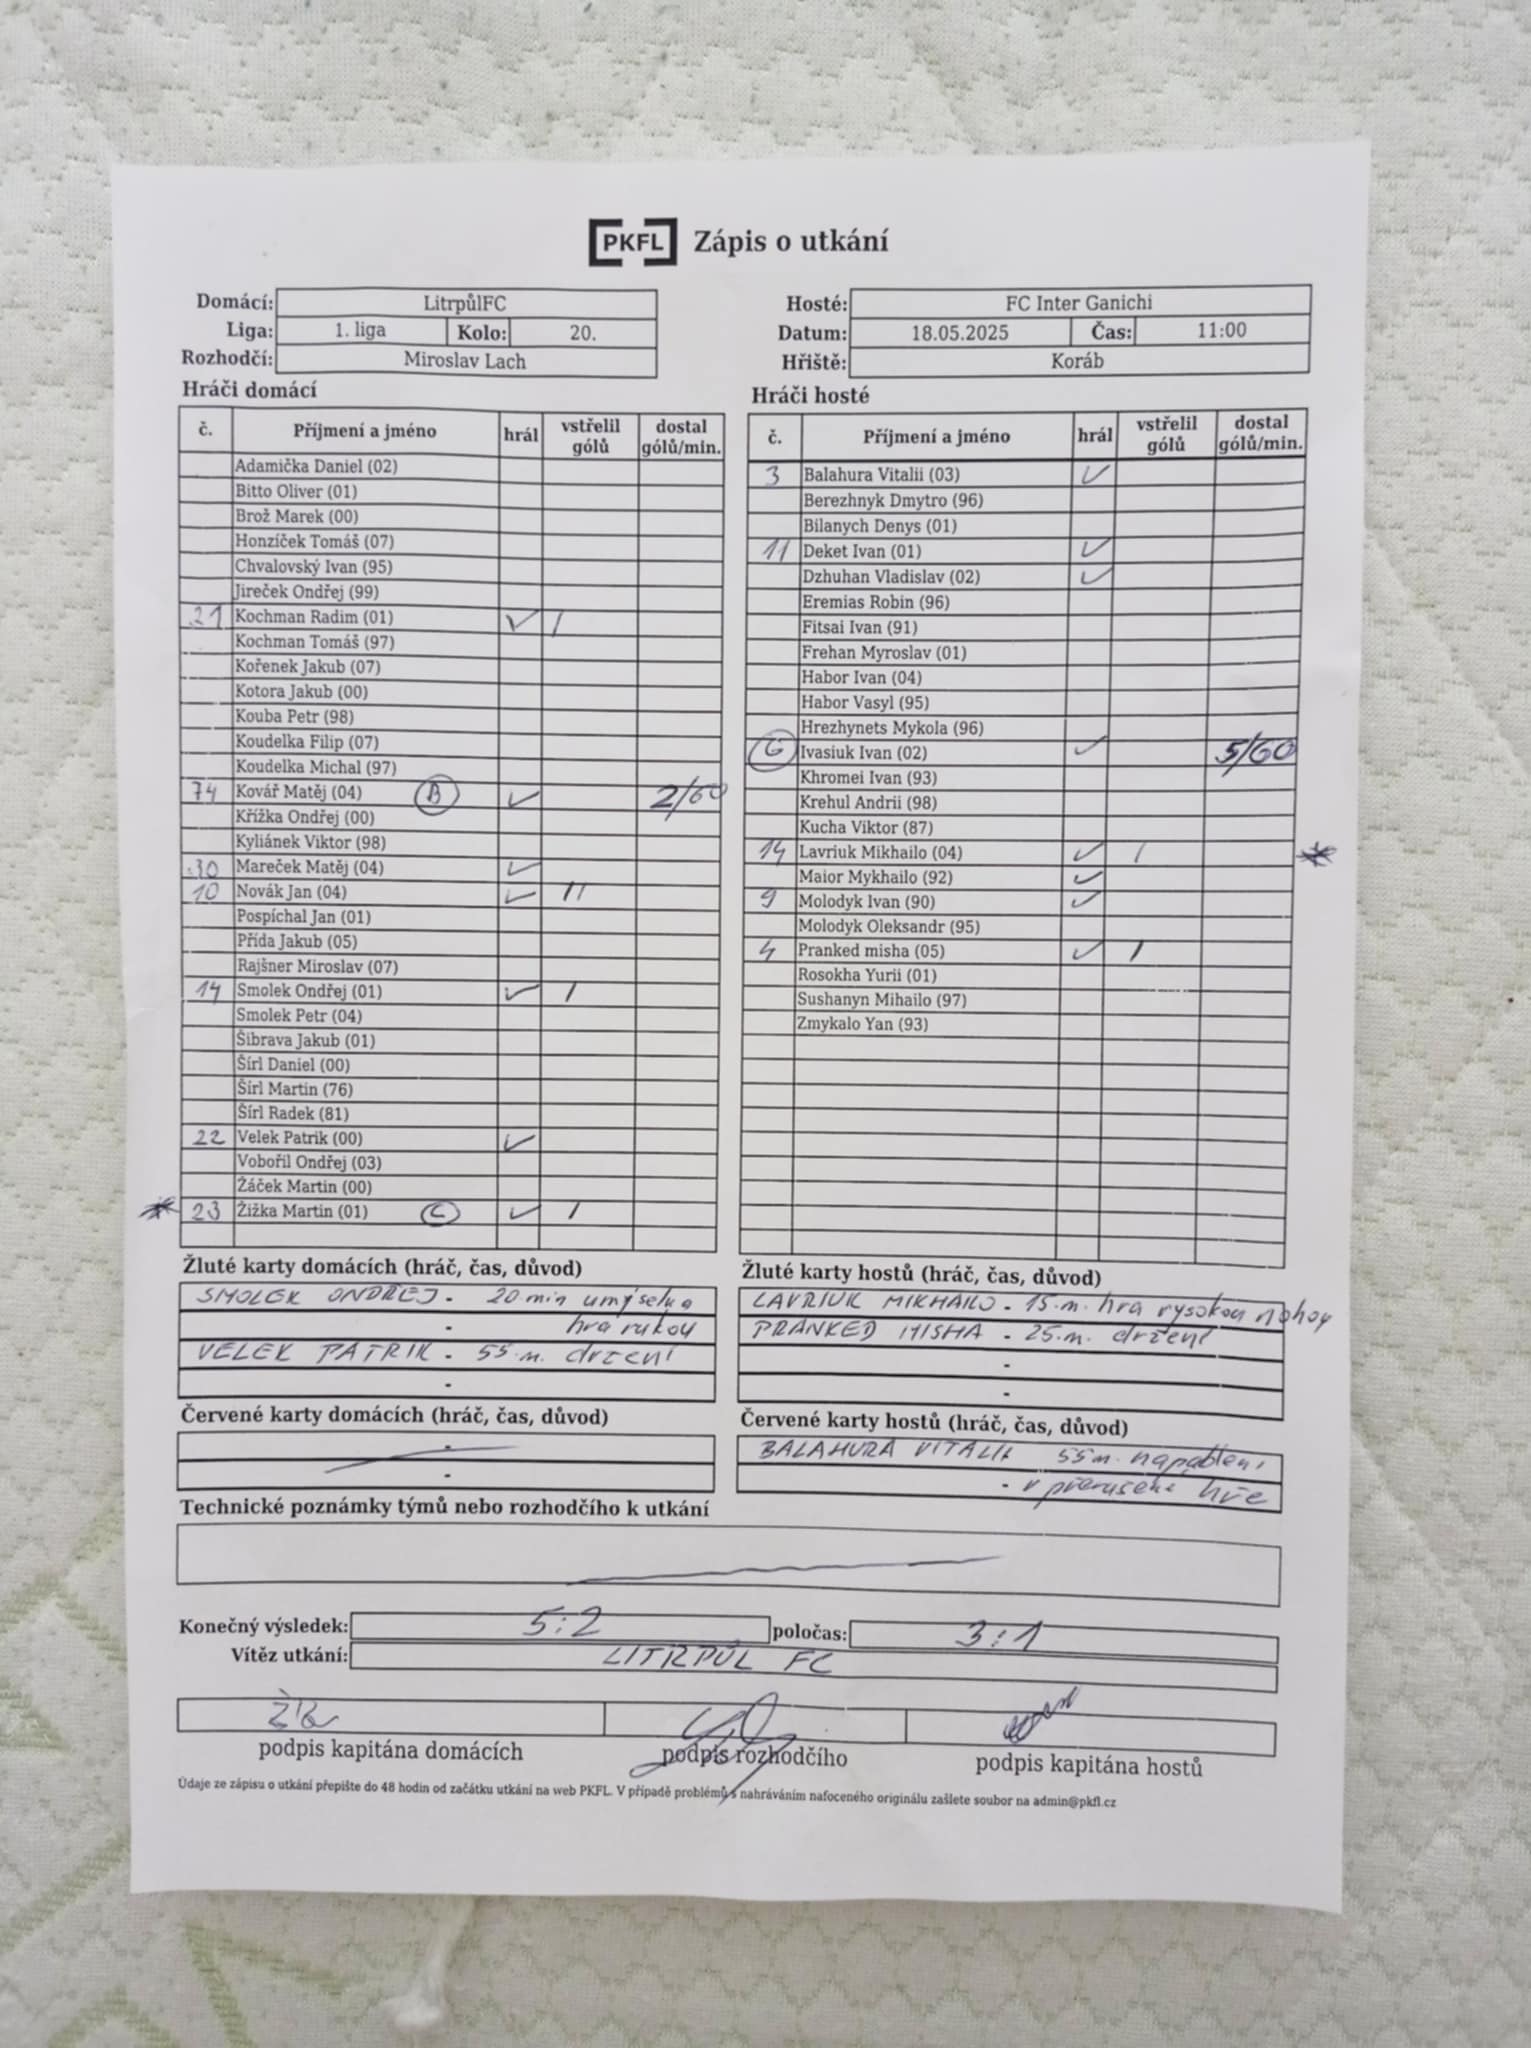 PKFL Zápis o utkání
Domácí: LitrpůlFC
Liga: 1. liga Kolo: 20.
Rozhodčí: Miroslav Lach
Hosté: FC Inter Ganichi
Datum: 18.05.2025 Čas: 11:00
Hřiště: Koráb
Hráči domácí
č. Příjmení a jméno hrál vstřelil gólů dostal gólů/min.
Adamička Daniel (02)
Bitto Oliver (01)
Brož Marek (00)
Honzíček Tomáš (07)
Chvalovský Ivan (95)
Jireček Ondřej (99)
21 Kochman Radim (01) ✓ I
Kochman Tomáš (97)
Kořenek Jakub (07)
Kotora Jakub (00)
Kouba Petr (98)
Koudelka Filip (07)
Koudelka Michal (97)
74 Kovář Matěj (04) B ✓ 2/60
Křížka Ondřej (00)
Kyliánek Viktor (98)
30 Mareček Matěj (04) ✓
10 Novák Jan (04) ✓ II
Pospíchal Jan (01)
Přída Jakub (05)
Rajšner Miroslav (07)
14 Smolek Ondřej (01) ✓ I
Smolek Petr (04)
Šibrava Jakub (01)
Šírl Daniel (00)
Šírl Martin (76)
Šírl Radek (81)
22 Velek Patrik (00) ✓
Vobořil Ondřej (03)
Žáček Martin (00)
* 23 Žižka Martin (01) C ✓ I
Hráči hosté
č. Příjmení a jméno hrál vstřelil gólů dostal gólů/min.
3 Balahura Vitalii (03) ✓
Berezhnyk Dmytro (96)
Bilanych Denys (01)
11 Deket Ivan (01) ✓
Dzhuhan Vladislav (02) ✓
Eremias Robin (96)
Fitsai Ivan (91)
Frehan Myroslav (01)
Habor Ivan (04)
Habor Vasyl (95)
Hrezhynets Mykola (96)
G Ivasiuk Ivan (02) ✓ 5/60
Khromei Ivan (93)
Krehul Andrii (98)
Kucha Viktor (87)
14 Lavriuk Mikhailo (04) ✓ I *
Maior Mykhailo (92) ✓
9 Molodyk Ivan (90) ✓
Molodyk Oleksandr (95)
4 Pranked misha (05) ✓ I
Rosokha Yurii (01)
Sushanyn Mihailo (97)
Zmykalo Yan (93)
Žluté karty domácích (hráč, čas, důvod)
SMOLEK ONDŘEJ - 20 min umýselná
- hra rukou
VELEK PATRIK - 55.m. držení
-
Žluté karty hostů (hráč, čas, důvod)
LAVRIUK MIKHAILO - 15.m. hra vysokou nohou
PRANKED MISHA - 25.m. držení
-
-
Červené karty domácích (hráč, čas, důvod)
-
-
Červené karty hostů (hráč, čas, důvod)
BALAHURA VITALII 55m. napadení
- v přerušené hře
Technické poznámky týmů nebo rozhodčího k utkání
Konečný výsledek: 5:2 poločas: 3:1
Vítěz utkání: LITRPŮL FC
podpis kapitána domácích podpis rozhodčího podpis kapitána hostů
Údaje ze zápisu o utkání přepište do 48 hodin od začátku utkání na web PKFL. V případě problémů s nahráváním nafoceného originálu zašlete soubor na admin@pkfl.cz